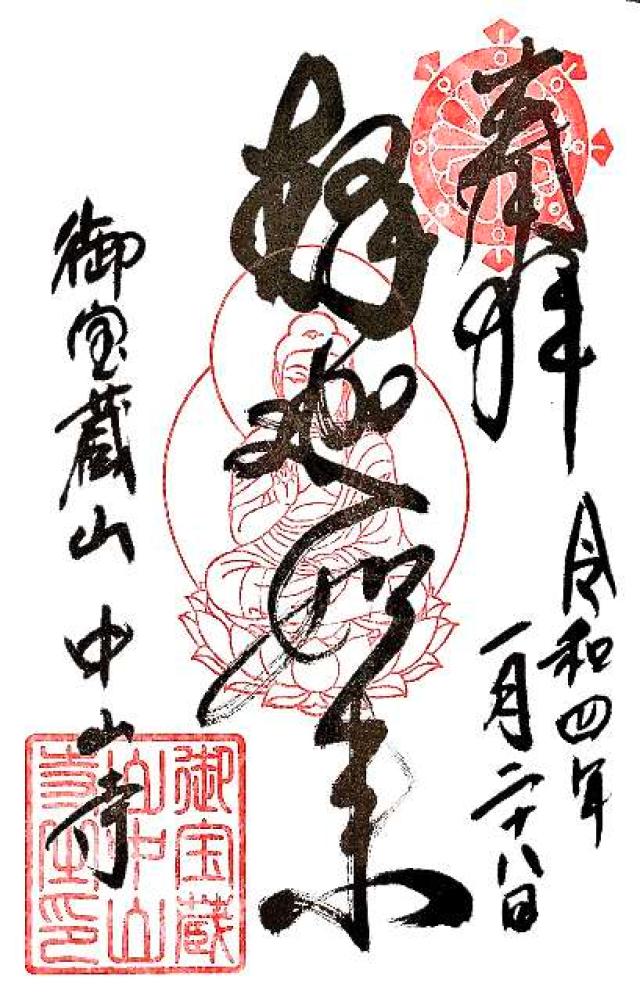 奉拝
令和四年
一月二十八日
釈迦如来
御宝蔵山 中山寺
御宝蔵
山中山
寺宝印